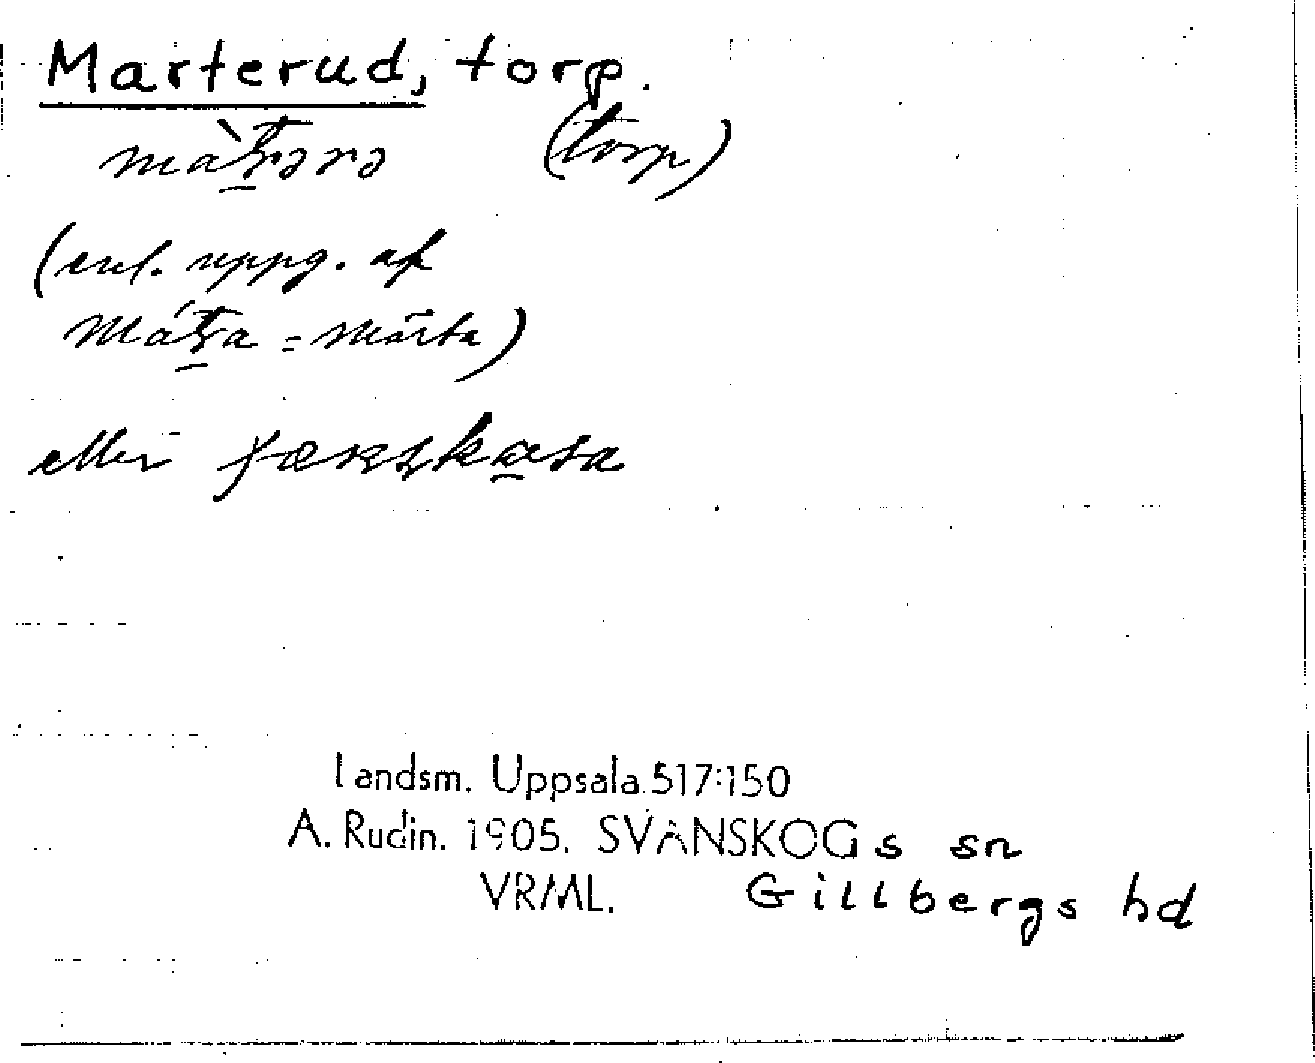 Marterud, torp.
màʈ̠ərə (torp)
(enl. uppg. af
Máʈ̠a = Märta)
eller
Landsm. Uppsala 517:150
A. Rudin. 1905. SVANSKOGs sn
VRML. Gillbergs hd